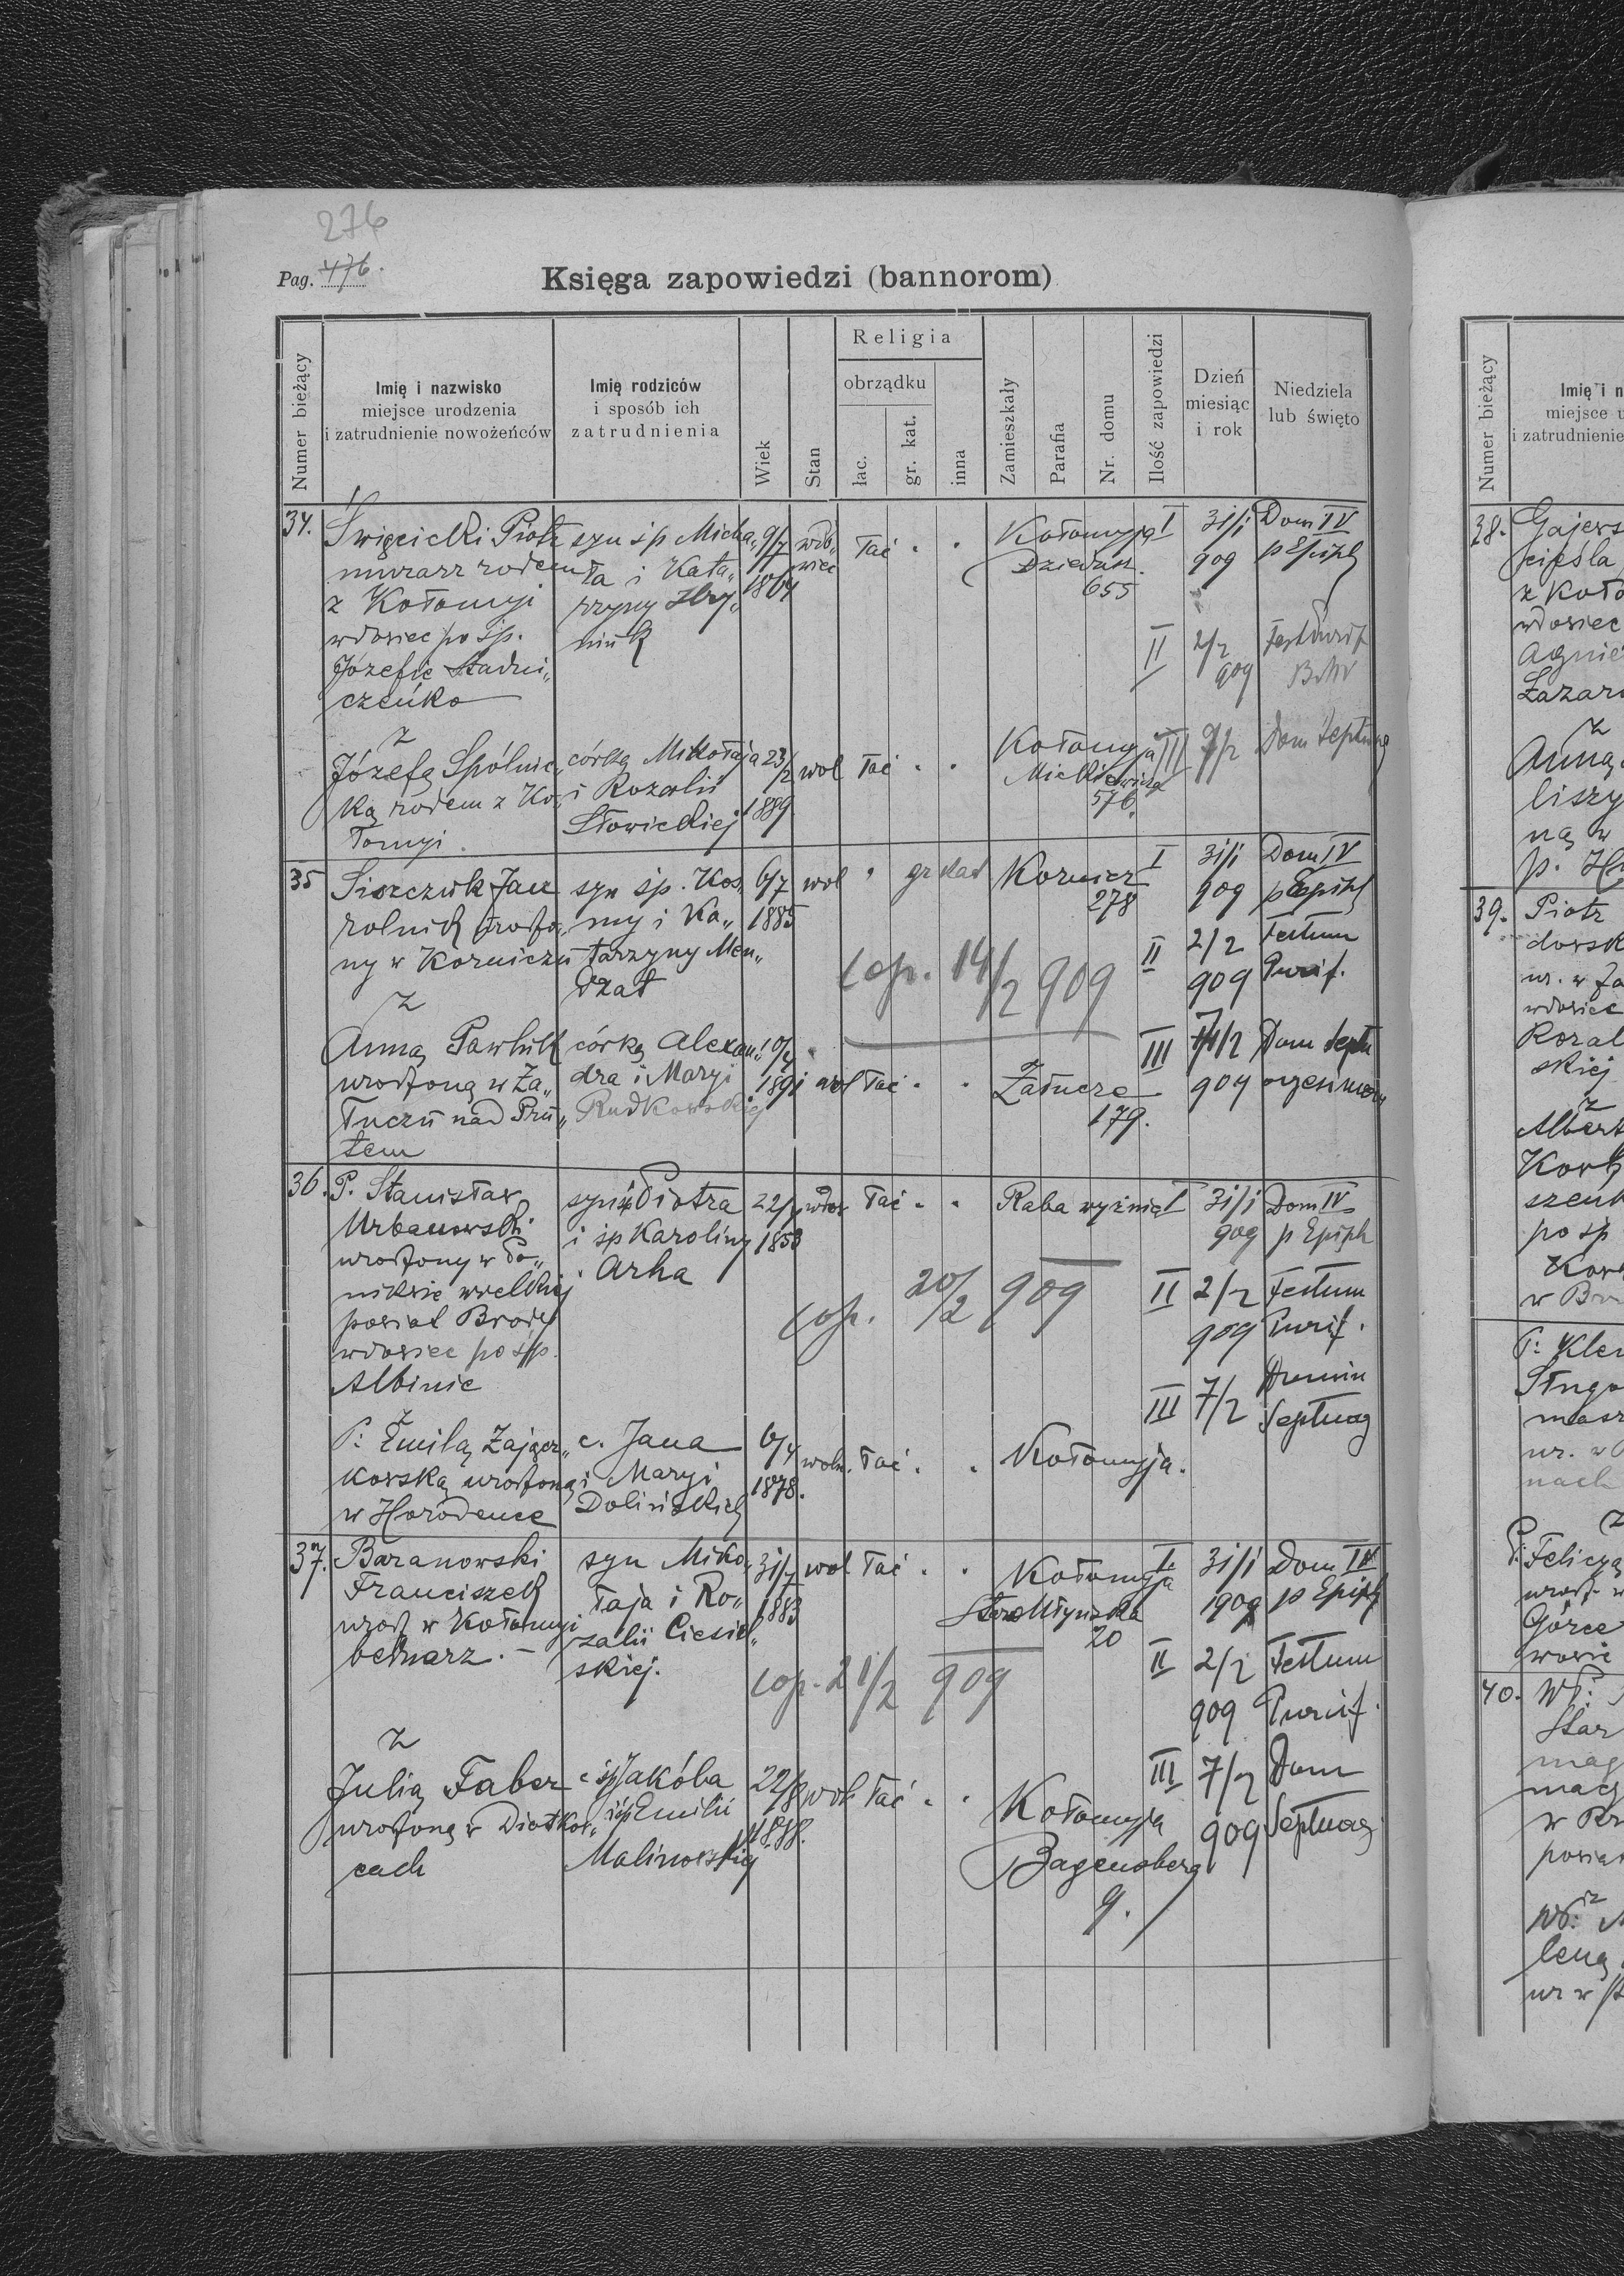 276
Pag. 476.
Księga zapowiedzi (bannorom)
Numer bieżący
Imię i nazwisko
miejsce urodzenia
i zatrudnienie nowożeńców
Imię rodziców
i sposób ich
zatrudnienia
Wiek
Stan
Religia
obrządku
łac.
gr. kat.
inna
Zamieszkały
Parafia
Nr. domu
Ilość zapowiedzi
Dzień
miesiąc
i rok
Niedziela
lub święto
34.
Święcicki Piotr
murarz rodem
z Kołomyi
wdowiec po śp.
Józefie Stadni„
czeńko
syn śp Micha„
ła i Kata„
rzyny Hry„
niuk
9/7
1864
wdo„
wiec
łać
Kołomyja
655
I
31/1
909
Dom IV
p Epiph
II
2/2
909
Fest Purif
BMV
z
Józefą Spólnic„
ką rodem z Ko„
łomyi.
córką Mikołaja
i Rozalii
Słowickiej
23/2
1889
wol
łać
Kołomyja
Mickiewicza
576.
III
7/2
Dom Septuag
35
Jan
rolnik urodzo„
ny w Korniczu
syn śp. Kos„
my i Ka„
tarzyny Men„
dzat
6/7
1885
wol
gr kat
Kornicz
278
I
31/1
909
Dom IV
p Epiph
cop. 14/2 909
II
2/2
909
Festum
Purif.
z
Anną Pawluk
urodzoną w Za„
łuczu nad Pru„
tem
córką Alexan„
dra i Maryi
Rudkowskiej
1891
wol
łać
Załucze
179.
III
7/2
909
Dom Septu
agesimam
36.
P. Stanisław
Urbanowski
urodzony w Po„
nikwie wielkiej
powiat Brody
wdowiec po śp.
Albinie
syn śp Piotra
i śp Karoliny
Arha
1853
wdow
łać
Raba wyżnia
I
31/1
909
Dom IV
p Epiph
cop. 20/2 909
II
2/2
909
Festum
Purif.
III
7/2
Domin
Septuag
z
P: Emilą Zające„
kowską urodzoną
w Horodence
c. Jana
i Maryi
Dolińskich
6/4
1878.
woln.
łać
Kołomyja.
37.
Baranowski
Franciszek
urodz w Kołomyi
bednarz. –
syn Miko„
łaja i Ro„
zalii Ciesiel„
skiej.
31/7
1883
wol
łać
Kołomyja
Staro Młyńska
20
I.
31/1
1909
Dom IV
p Epiph
cop. 21/2 909
II
2/2
909
Festum
Purif.
z
Julią Faber
urodzoną w Diatkow„
cach
c śp Jakóba
i śp Emilii
Malinowskiej
22/8
1888.
wol
łać
Kołomyja
Bagensberg
9.
III
7/2
909
Dom
Septuag
Numer bieżący
Imię i n
miejsce u
i zatrudnienie
38.
Gajews
cieśla
z Koło
wdowiec
Agnie
Łazar
z
Anną
liszy
ną w
p. H
39.
Piotr
dowsk
ur. w Za
wdowiec
Rozal
skiej
z
Albert
Kow
szen
po śp
Kow
w Br
P: Kle
Sługo
masz
ur. w
nach
z
P: Felicyą
urodz w
Górce
wowie
40.
WP:
Star
mag
mag
w Kr
powiat
z
WP:
leną
ur w